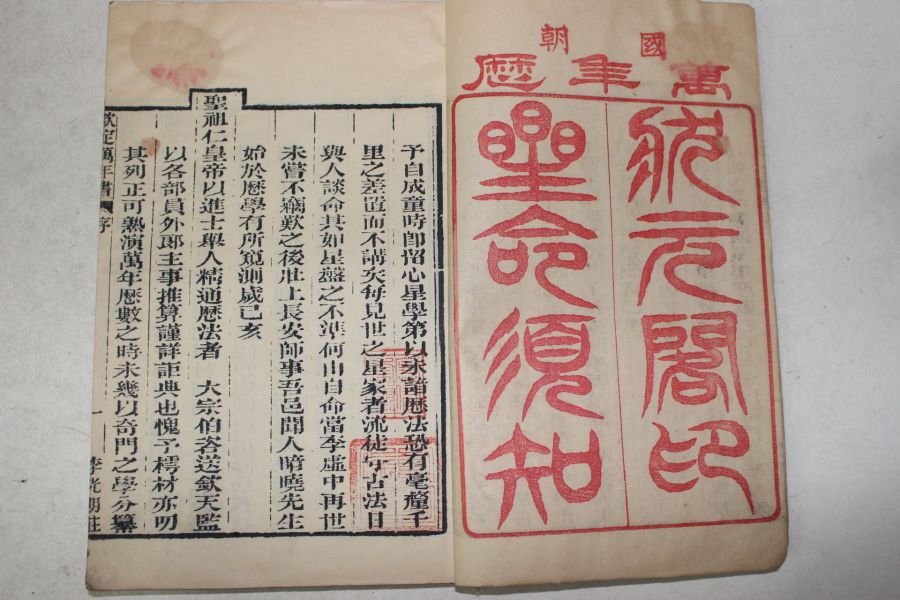 國朝
萬年厯
狀元閣印
星命須知
予自成童時即留心星學第以未諳厯法恐有毫釐千
里之差置而不講矣每見世之星家者流徒守古法日
與人談命其如星盤之不準何由自命當李虛中再世
未嘗不竊歎之後壯上長安師事吾邑聞人暗曉先生
始於厯學有所窺測歲己亥
聖祖仁皇帝以進士舉人精通厯法者 大宗伯咨送欽天監
以各部員外郎主事推算謹詳詎典也愧予樗材亦叨
其列正可熟演萬年厯數之時未幾以奇門之學分纂
欽定萬年書 序 一 李光明莊